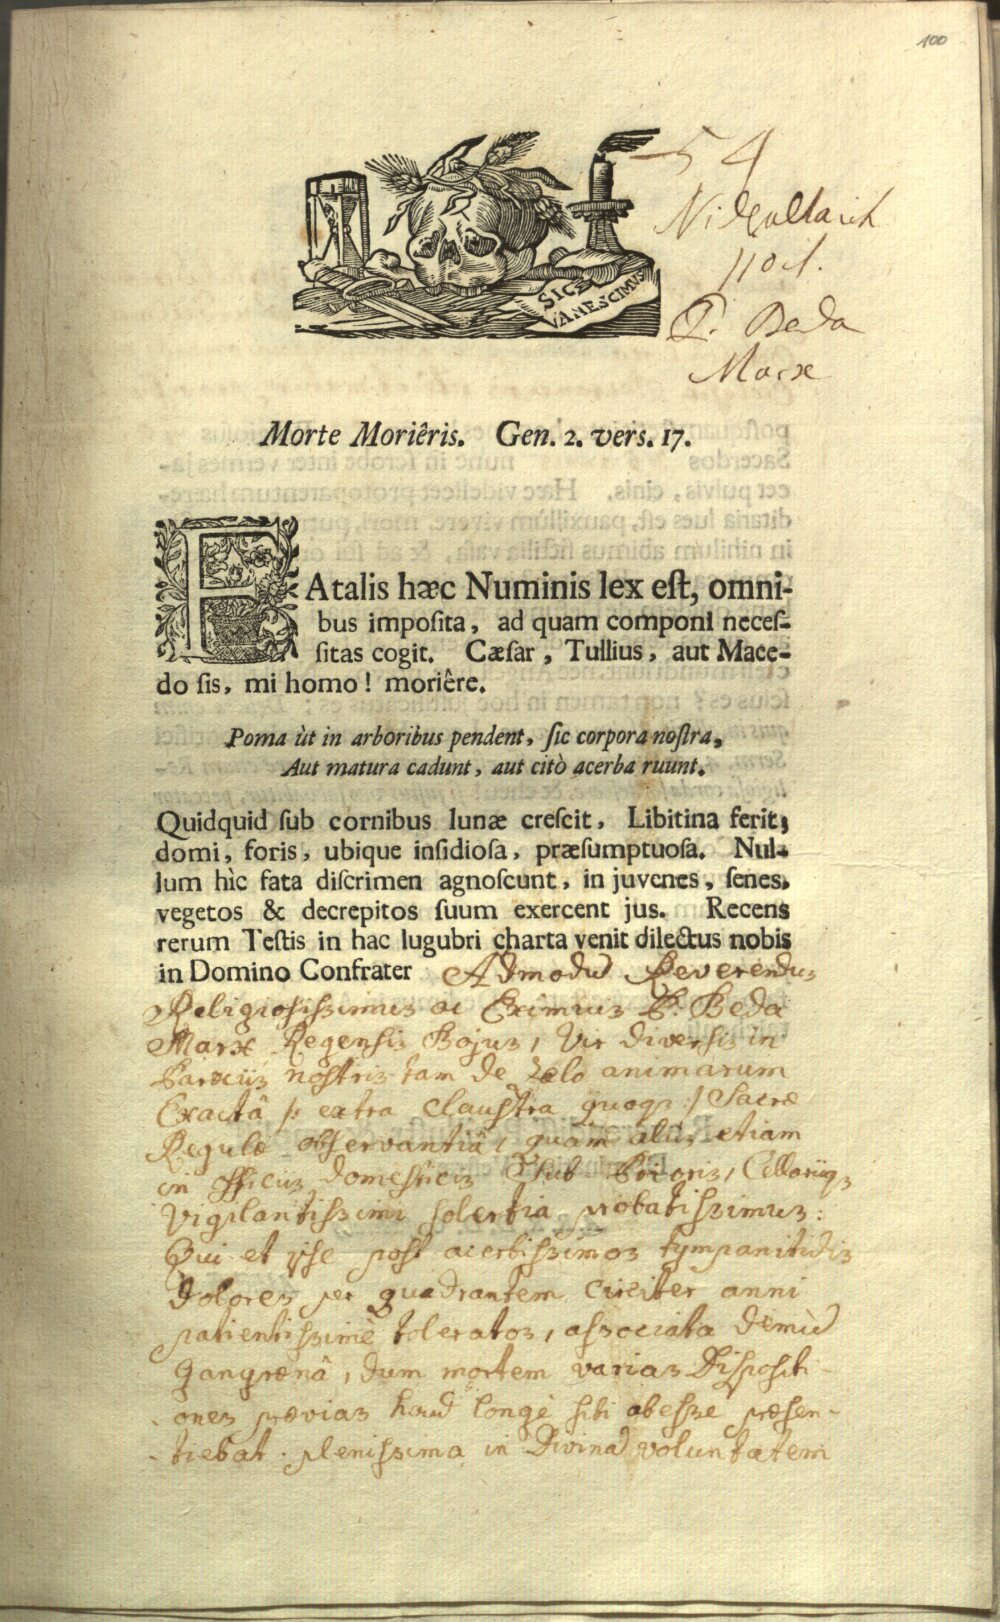 100
54
P. Beda
Marx
SIC
VANESCIMUS
Morte Moriêris. Gen. 2. vers. 17.
FAtalis hæc Numinis lex eſt, omni-
bus impoſita, ad quam componi neceſ-
ſitas cogit. Cæſar, Tullius, aut Mace-
do ſis, mi homo! moriêre.
Poma ùt in arboribus pendent, ſic corpora noſtra,
Aut matura cadunt, aut citò acerba ruunt.
Quidquid ſub cornibus lunæ creſcit, Libitina ferit;
domi, foris, ubique inſidioſa, præſumptuoſa. Nul-
lum hìc fata diſcrimen agnoſcunt, in juvenes, ſenes,
vegetos & decrepitos ſuum exercent jus. Recens
rerum Teſtis in hac lugubri charta venit dilectus nobis
in Domino Confrater Admodū Reverendus
Religiosissimus ac Eximius P. Beda
Marx Regensis Bojus, Vir diversis in
Parociis nostris tam de Zelo animarum
Exactâ /: extra claustra quoq; :/ Sacræ
Regulæ observantiâ, quàm aliis etiam
in officiis domesticis Sub Prioris, Cellariiq;
Vigilantissimi solertia probatissimus:
Qui et ipse post acerbissimos tympanitidis
dolores per quadrantem circiter anni
patientissimè toleratos, associata demū
gangrænâ, dum mortem varias Dispositi-
ones prævias haud longè sibi abesse præsen-
tiebat. plenissima in Divinā voluntatem